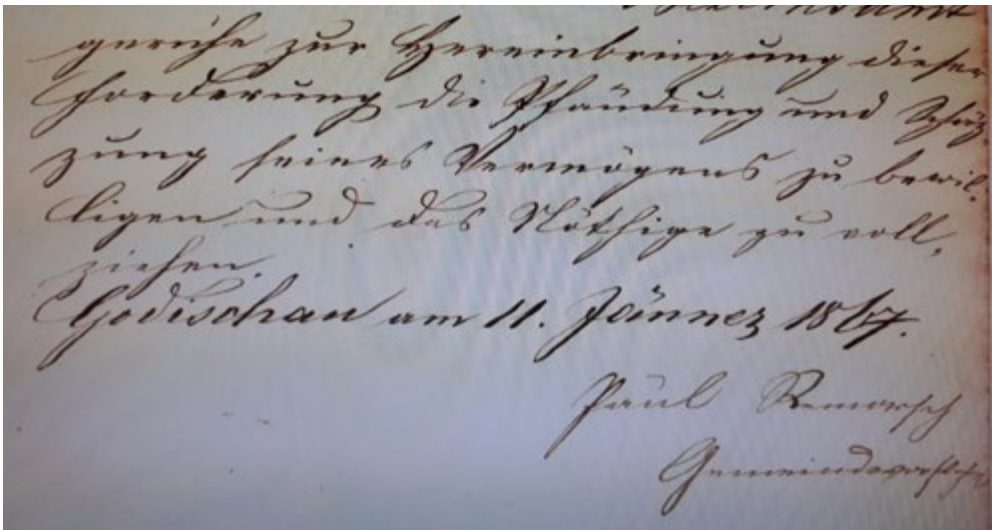 geruhe zur Hereinbringung dieser
Forderung die Pfändung und Schät-
zung seines Vermögens zu bewil-
ligen und das Nöthige zu voll-
ziehen.
Godischau am 11. Jänner 1867.
Paul
Gemeindevorsteher